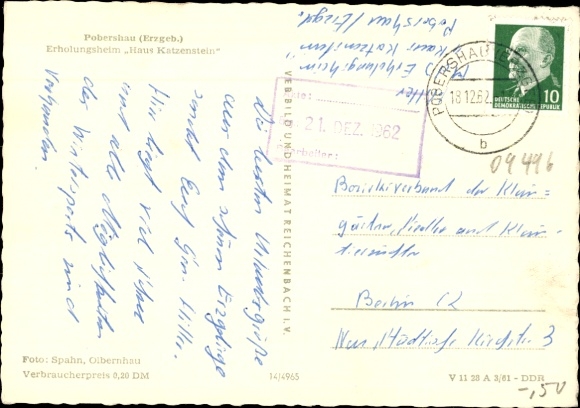 Pobershau (Erzgeb.)
Erholungsheim „Haus Katzenstein"
Erholungsheim
"Haus Katzenstein"
Pobershau/Erzgeb.
DEUTSCHE
DEMOKRATISCHE REPUBLIK
10
POBERSHAU
18.12.62
b
21. DEZ. 1962
09496
Die besten Urlaubsgrüße
aus dem schönen Erzgebirge
sendet Euch Gen. Hiller.
Hier liegt viel Schnee
und alle Möglichkeiten
des Wintersports sind
Vorhanden.
VEB BILD UND HEIMAT REICHENBACH I.V.
Bezirksverband der Klein=
gärtner, Siedler und Klein-
tierzüchter
Berlin C2
Neue Friedrichstr. 3
Foto: Spahn, Olbernhau
Verbraucherpreis 0,20 DM
14/4965
V 11 28 A 3/61 - DDR
-,50